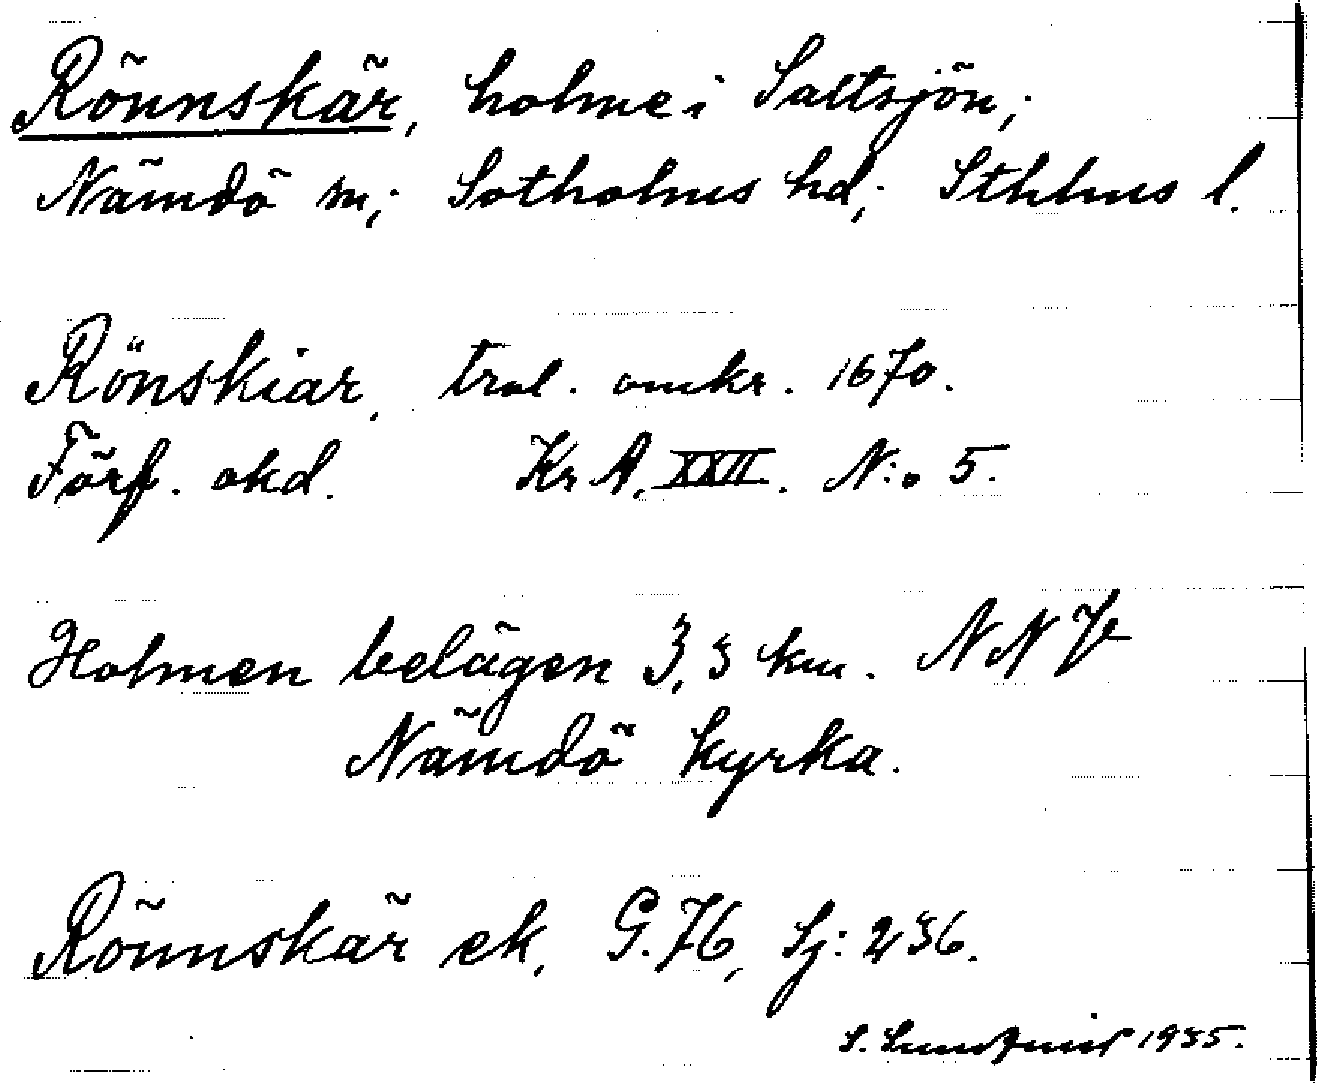 Rönnskär, holme i Saltsjön;
Nämdö sn; Sotholms hd; Sthlms l.
Rönskiar, trol. omkr. 1670.
Förf. okd. Kr A. XXII. N:o 5.
Holmen belägen 3,3 km. NNV
Nämdö kyrka.
Rönnskär ek, G. 76, Sj: 236.
S. Sundqvist 1935.